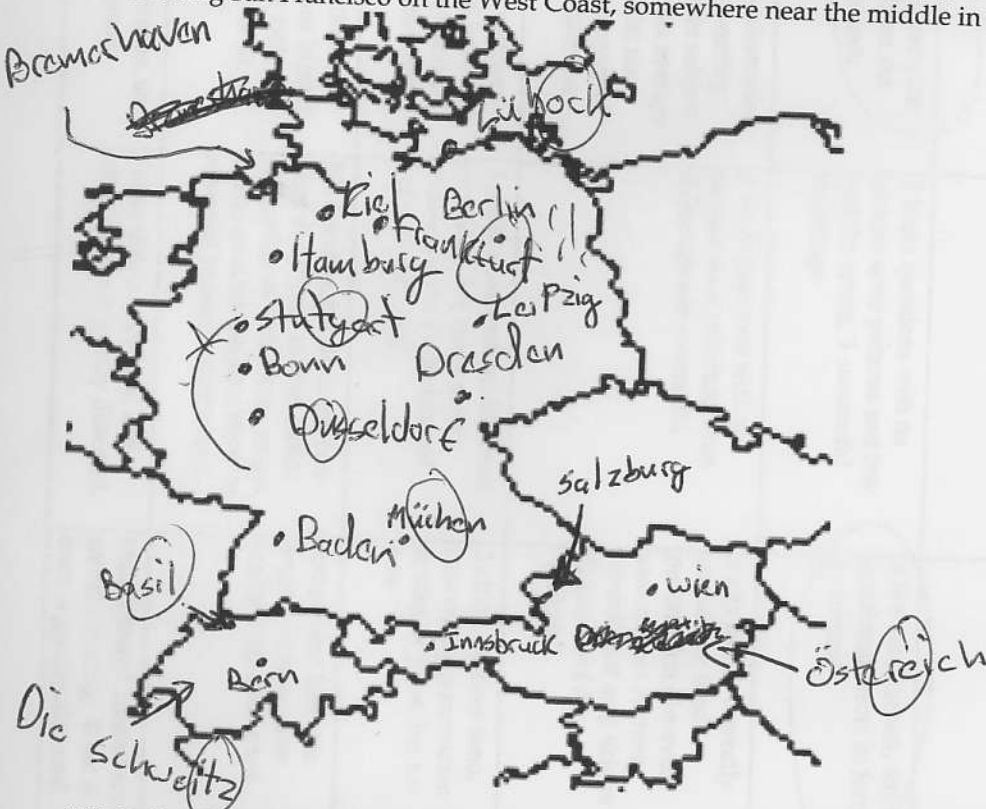 San Francisco on the West Coast, somewhere near the middle in
Bremerhaven
Lühock
Kiel
Berlin!!!
Frankfurt
Hamburg
Stutgart
Leipzig
Bonn
Dresden
Düsseldorf
Salzburg
Müchen
Baden
Basil
Wien
Innsbruck
Östereich
Bern
Die Schweitz